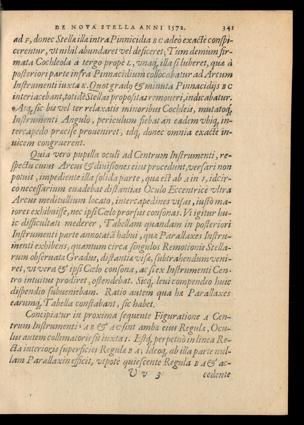 DE NOVA STELLA ANNI 1572. 341
ad F, donec Stella illa intra Pinnicidia B C adeo exacte conspi-
cerentur, ut nihil abundaret vel deficeret; Tum demum fir-
mata Cochleola à tergo propè L, unaq́; illa si luberet, quæ à
posteriori parte infra Pinnacidium collocabatur ad Arcum
Instrumenti iuxta E. Quot gradus & minuta Pinnacidijs B C
interiacebant, totidē Stellas propositas removeri, indicabatur.
Atq́; sic bis vel ter relatis minoribus Cochleis, mutatoq́;
Instrumenti Angulo, periculum fiebat an eadem ubiq́; in-
tercapedo præcise proveniret, idq́; donec omnia exactè in-
vicem congruerent.
Quia verò pupilla oculi ad Centrum Instrumenti, re-
spectu cuius Arcus & divisiones eius procedent, versari non
potuit, impediente illa solida parte, quæ est ab A in I, idcir-
co necessarium evadebat distantias Oculo Eccentricè ultra
Arcus meditullium locato, intercapedines visas, iusto ma-
iores exhibuisse, nec ipsi Cœlo prorsus consonas. Vt igitur huic
difficultati mederer, Tabellam quandam in posteriori
Instrumenti parte annotatā habui, quæ Parallaxes Instru-
menti exhibens, quantum circa singulas Remotiones Stella-
rum observata Gradus, distantia visa, subtrahendum veni-
ret, ut vera & ipsi Cœlo consona, ac si ex Instrumenti Cen-
tro intuitus prodiret, ostendebat. Sicq́; leui compendio huic
dispendio subveniebam. Ratio autem qua ha Parallaxes
earumq́; Tabella constabant, sic habet.
Concipiatur in proxima sequente Figuratione A Cen-
trum Instrumenti: A B & A C sint ambæ eius Regulæ, Ocu-
lus autem collimatoris sit iuxta I. Estq́; perpetuò in linea Re-
cta interioris superficiei Regulæ B A; Ideoq́; ab illa parte nul-
lam Parallaxin efficit, utpotè quiescente Regula B A & ac-
V v 3 cedente